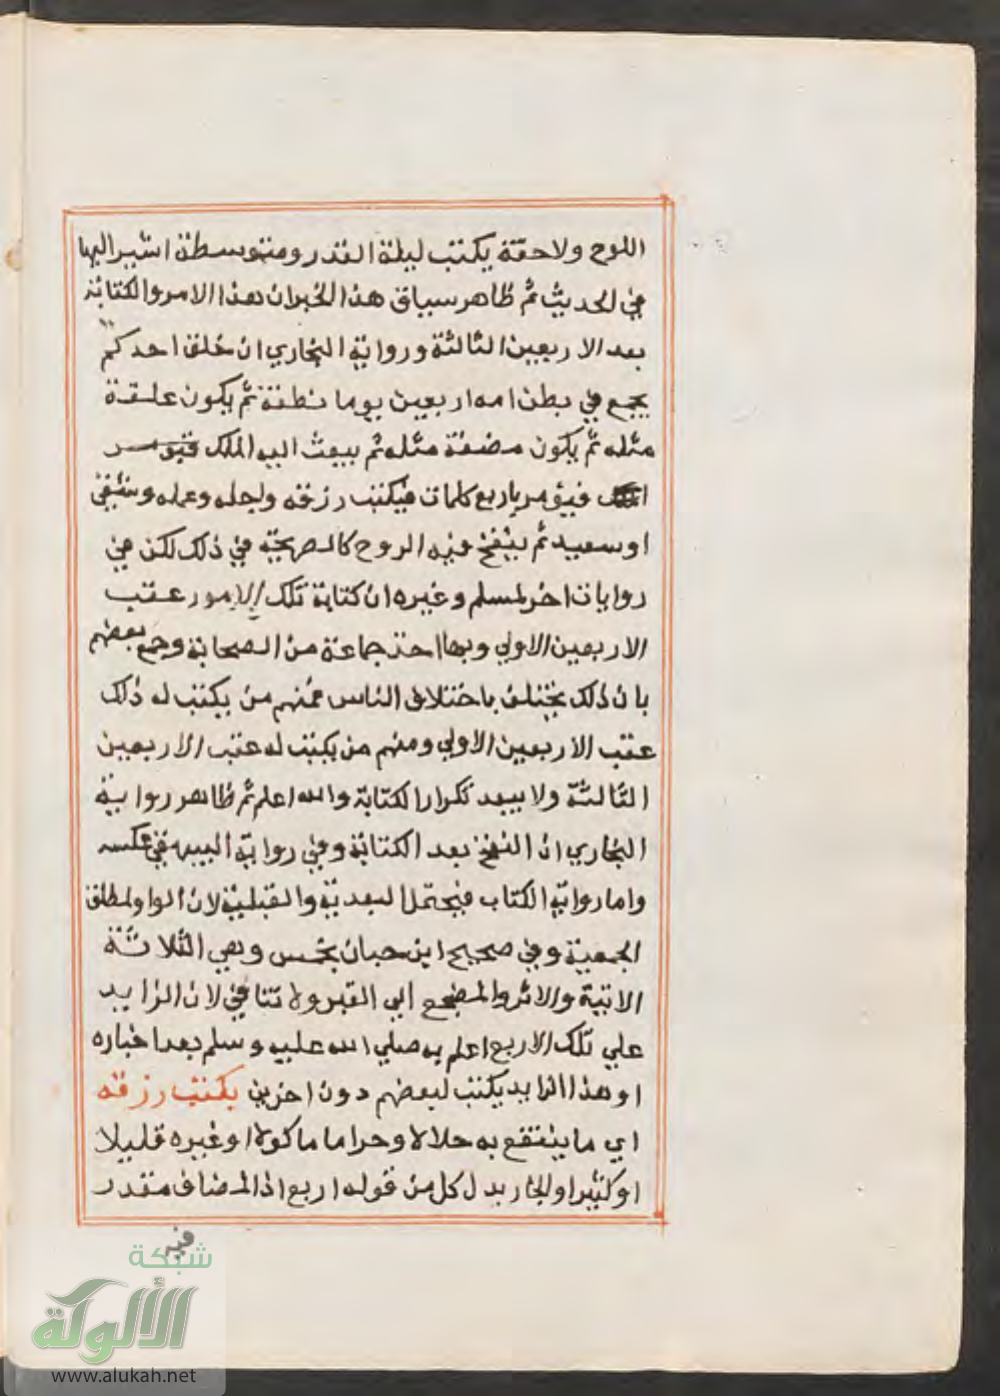 اللوح ولاحقة يكتب ليلة القدر ومتوسطة اشير اليها
في الحديث ثم ظاهر سياق هذا الخبر ان هذا الامر والكتابة
بعد الاربعين الثالثة ورواية البخاري ان خلق احدكم
يجمع في بطن امه اربعين يوما نطفة ثم يكون علقة
مثله ثم يكون مضغة مثله ثم يبعث اليه الملك
فيؤمر باربع كلمات فيكتب رزقه واجله وعمله وشقي
او سعيد ثم ينفخ فيه الروح كالصريحة في ذلك لكن في
روايات اخر لمسلم وغيره ان كتابة تلك الامور عقب
الاربعين الاولي وبها اخذ جماعة من الصحابة وجمع بعضهم
بان ذلك يختلف باختلاف الناس فمنهم من يكتب له ذلك
عقب الاربعين الاولي ومنهم من يكتب له عقب الاربعين
الثالثة ولا يبعد تكرار الكتابة والله اعلم ثم ظاهر رواية
البخاري ان النفخ بعد الكتابة وفي رواية البيهقي عكسه
واما رواية الكتاب فيحتمل البعدية والقبلية لان الواو لمطلق
الجمعية وفي صحيح ابن حبان بخمس وهي الثلاثة
الاتية والاثر والمضجع الي القبر ولا تنافي لان الزايد
علي تلك الاربع اعلم به صلي الله عليه وسلم بعد اخباره
او هذا الزايد يكتب لبعضهم دون اخرين يكتب رزقه
اي ما ينتفع به حلالا وحراما ماكولا او غيره قليلا
او كثيرا والجار بدل كل من قوله اربع اذ المضاف مقدر
شبكة
الألوكة
www.alukah.net